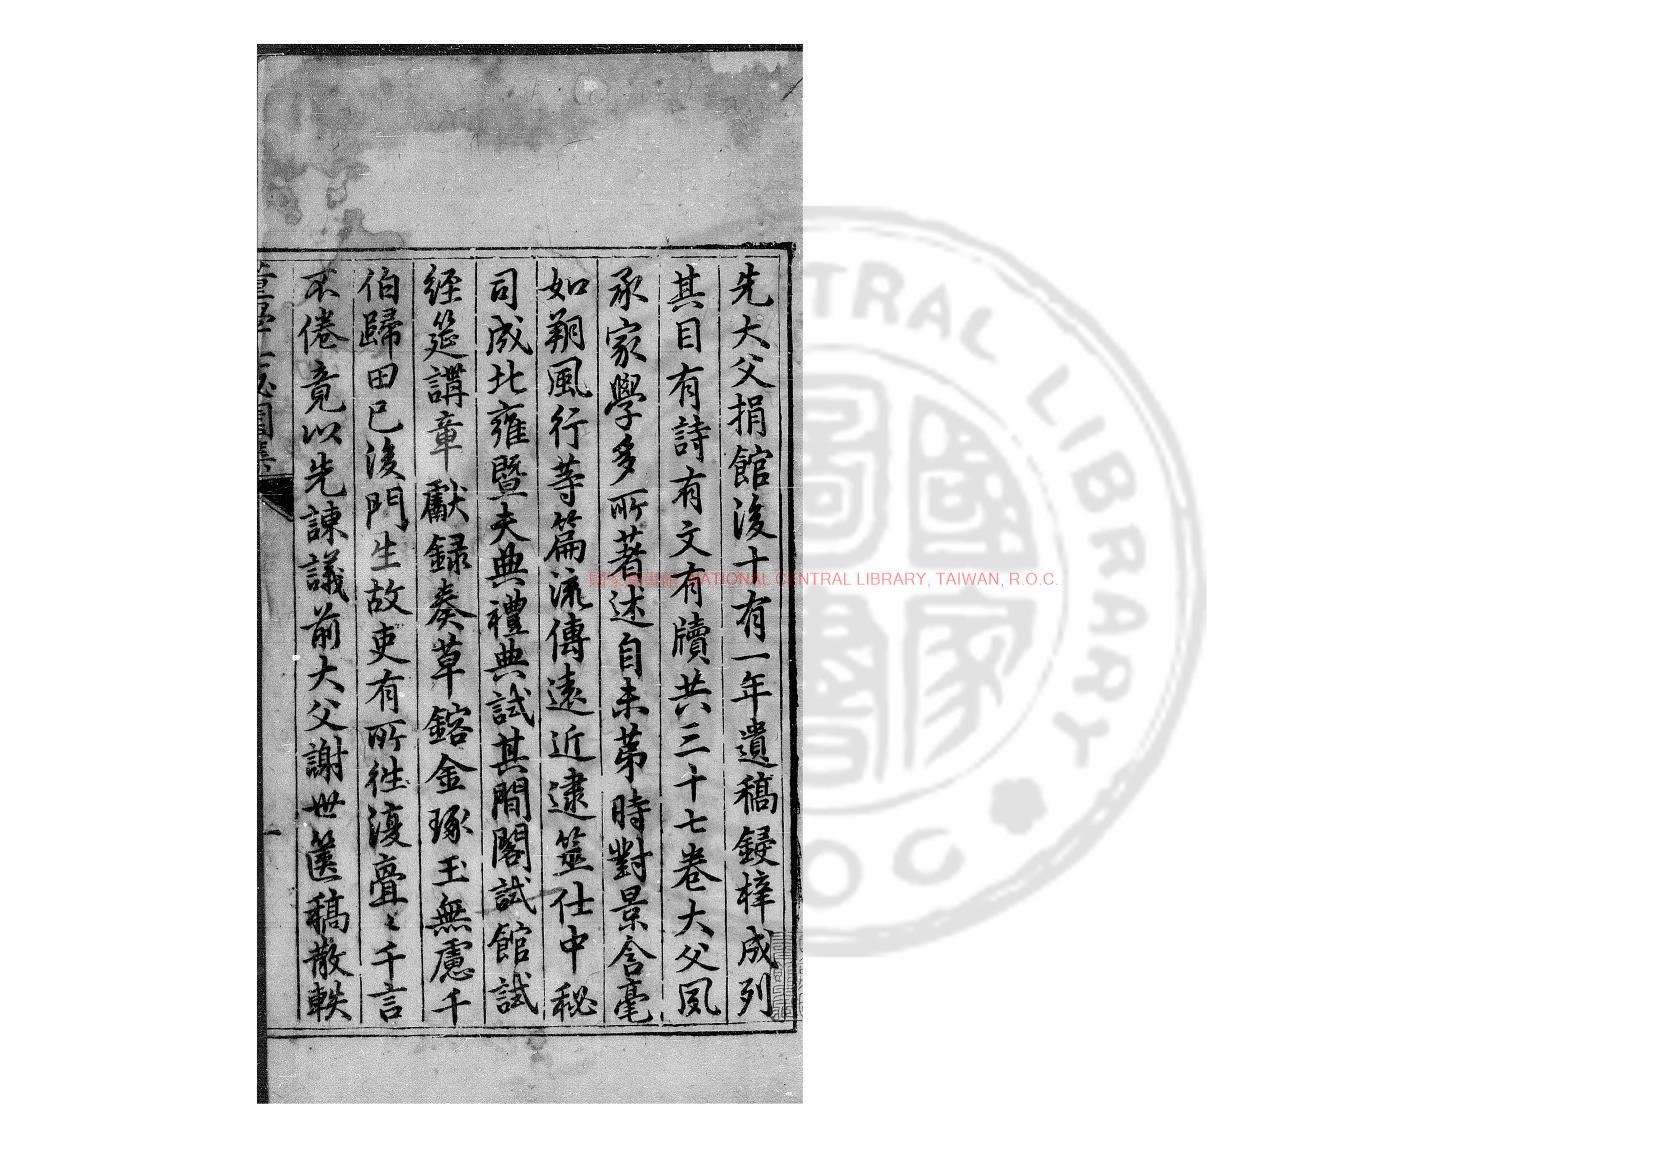 先大父捐館後十有一年遺稿鋟梓成列
其目有詩有文有牘共三十七卷大父夙
承家學多所著述自未第時對景含毫
如朔風行等篇流傳遠近逮筮仕中秘
司成北雍暨夫典禮典試其間閣試館試
經筵講章獻録奏草鎔金琢玉無慮千
伯歸田已後門生故吏有所徃復亹〻千言
不倦竟以先諫議前大父謝世篋稿散軼
董學士泌園集
一
國家圖書館 NATIONAL CENTRAL LIBRARY, TAIWAN, R.O.C.
國家圖書館
CENTRAL LIBRARY R.O.C.